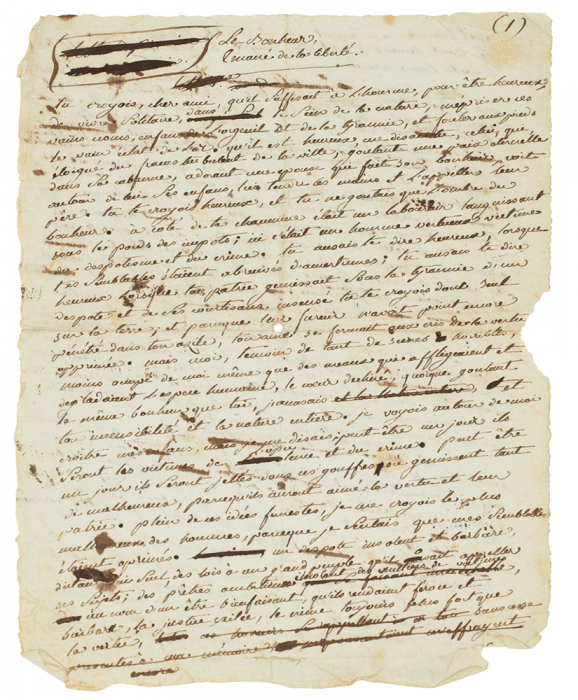 (1)
Le Bonheur,
Emané de la liberté.
tu croyois, cher ami, qu'il suffisoit a l'homme, pour être heureux
de vivre solitaire, dans le sein de la nature, mepriser ces
vains noms, enfans de l'orgeuil Et de la tyrannie, et fouler aux pieds
le vain éclat de l'or; qu'il est heureux, me disois, celui, que
éloigné du fracas turbulent de la ville, goutant une paix eternelle
dans sa cabanne, adorant une epouse qui fait son bonheur, voit
autour de lui ses enfans, lui tendre les mains et l'appeller leur
père. tu te croyois heureux, et tu ne goutais que l'ombre du
bonheur. a coté de ta chaumine était un laboureur languissant
sous le poids des impots; ici c'était un homme vertueux, victime
du despotisme et du crime. tu osais te dire heureux, lorsque
tes semblables étaient abreuvés d'amertumes; tu osais te dire
heureux lorsque ta patrie gemissait sous la tyrannie d'un
despote et de ses courtisans, insensé tu te croyois donc seul
sur la terre; et parceque leur fureur n'avait point encore
penetré dans ton azile, ton ame se fermait aux cris de la vertu
opprimée. mais moi, temoin de tant de scenes horribles,
moins occupé de moi même que des meaux qui affligeaient et
degradaient l'espece humaine, le cœur dechiré, quoique goutant
le même bonheur que toi, jamais et
ton insensibilité et la nature entiere. je voyois autour de moi
croitre mes enfans, mais je me disais peut être un jour ils
seront les victimes de et du crime. peut être
un jour ils seront jettés dans ces gouffres, ou gemissent tant
de malheureux, parcequ'ils auront aimé la vertu et leur
patrie. plein de ces idées funestes, je me croyois le plus
malheureux des hommes, parceque je sentais que mes semblables
étaient oprimés. un despote insolent et barbare,
dictant des loix à un grand peuple qu'il osait appeller
ses sujets; des prêtres ambitieux immolant des milliers de victimes
au nom d'un être bienfaisant, qu'ils rendaient feroce et
barbare, la justice exilée, le crime toujours plus fort que
la vertu,
encore